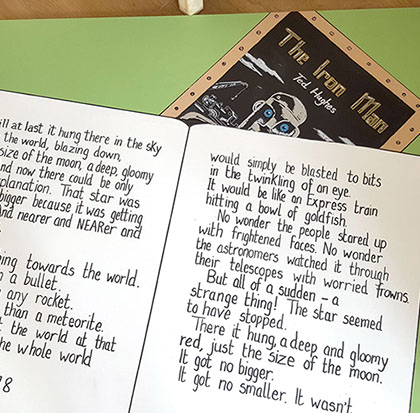 The Iron Man
Ted Hughes
ill at last it hung there in the sky
the world, blazing down,
size of the moon, a deep, gloomy
nd now there could be only
planation. That star was
bigger because it was getting
And nearer and NEARer and
ing towards the world.
a bullet.
any rocket.
than a meteorite.
t the world at that
he whole world
would simply be blasted to bits
in the twinkling of an eye.
It would be like an Express train
hitting a bowl of goldfish.
No wonder the people stared up
with frightened faces. No wonder
the astronomers watched it through
their telescopes with worried frowns.
But all of a sudden – a
strange thing! The star seemed
to have stopped.
There it hung, a deep and gloomy
red, just the size of the moon.
It got no bigger.
It got no smaller. It wasn't